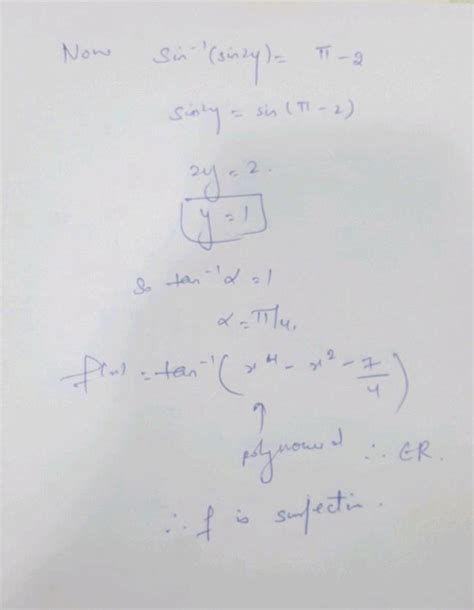 Now sin⁻¹(sin2y) = π - 2
sin2y = sin(π - 2)
2y = 2.
y = 1
So tan⁻¹α = 1
α = π/4,
f(x) = tan⁻¹(x⁴ - x² - 7/4)
↑
polynomial ∴ ∈R.
∴ f is surjectin.